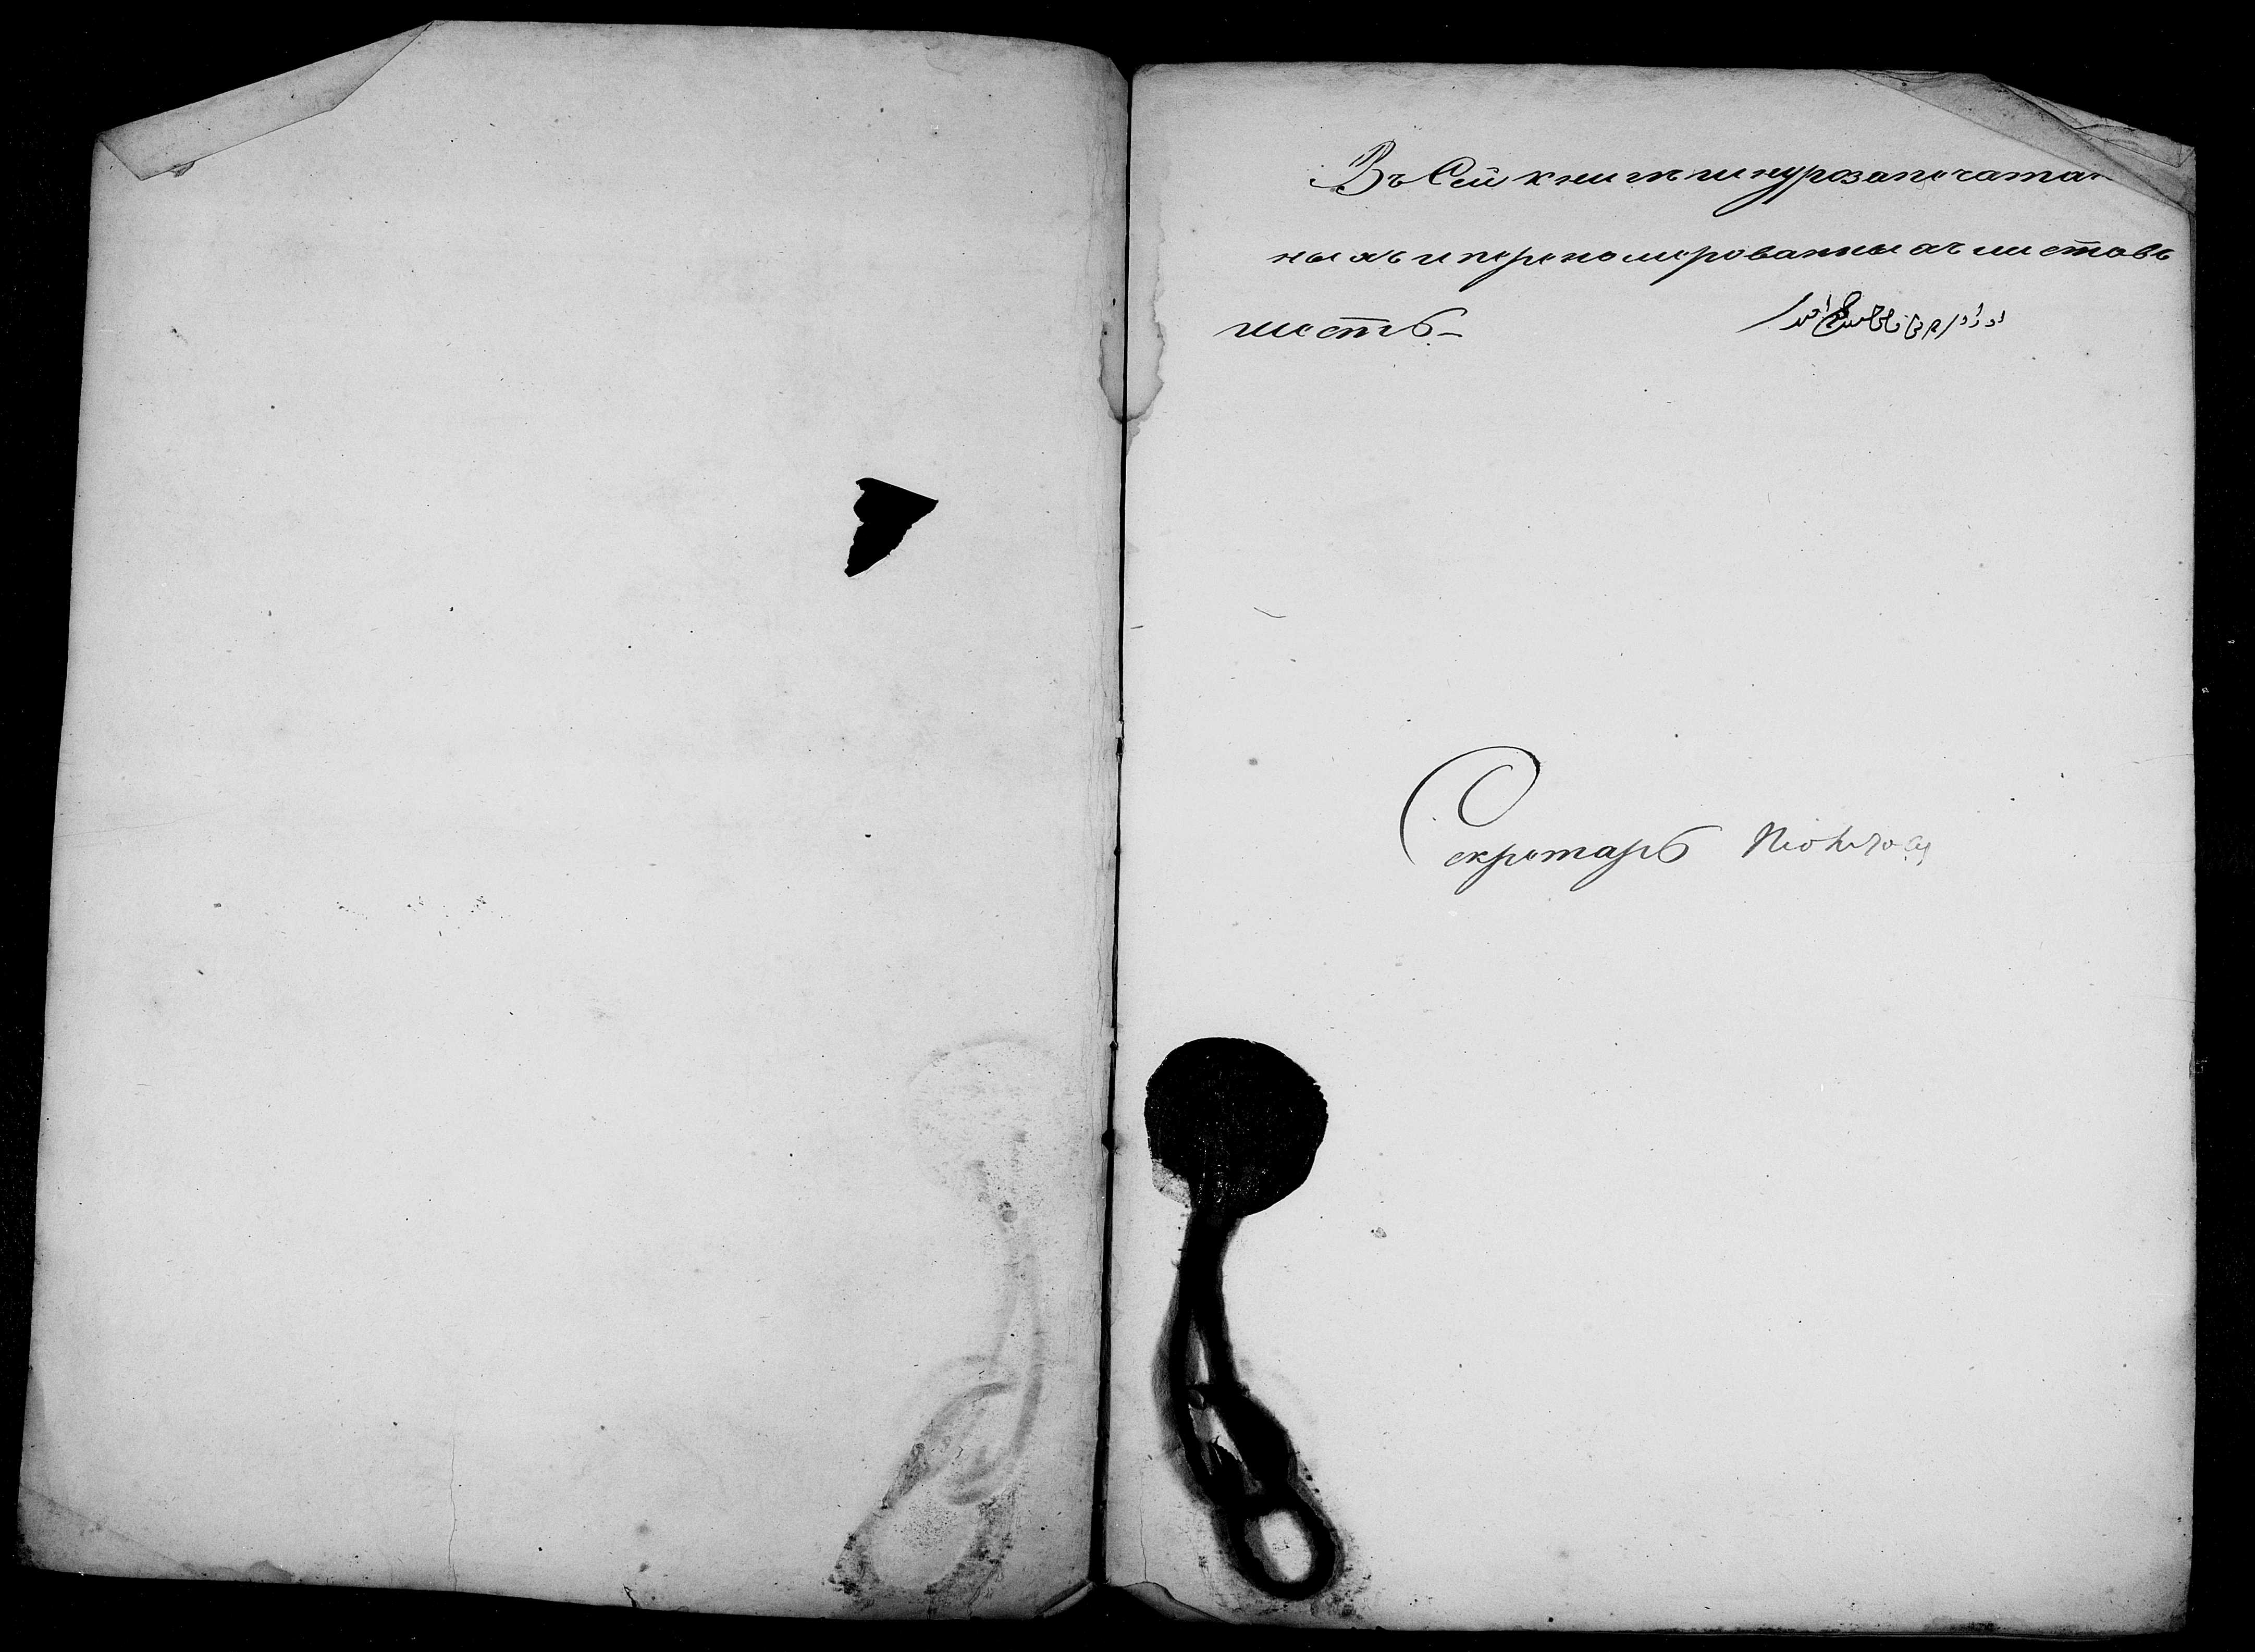 Въ Сей книгѣ шнурозапечатан
ныхъ и перенумерованныхъ листовъ
шесть
Секретарь